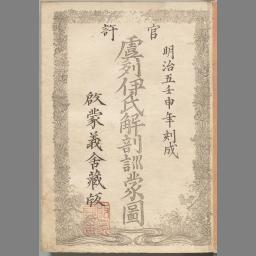 官許
明治五壬申年刻成
虞列伊氏解剖訓蒙圖
啟蒙義舎藏版